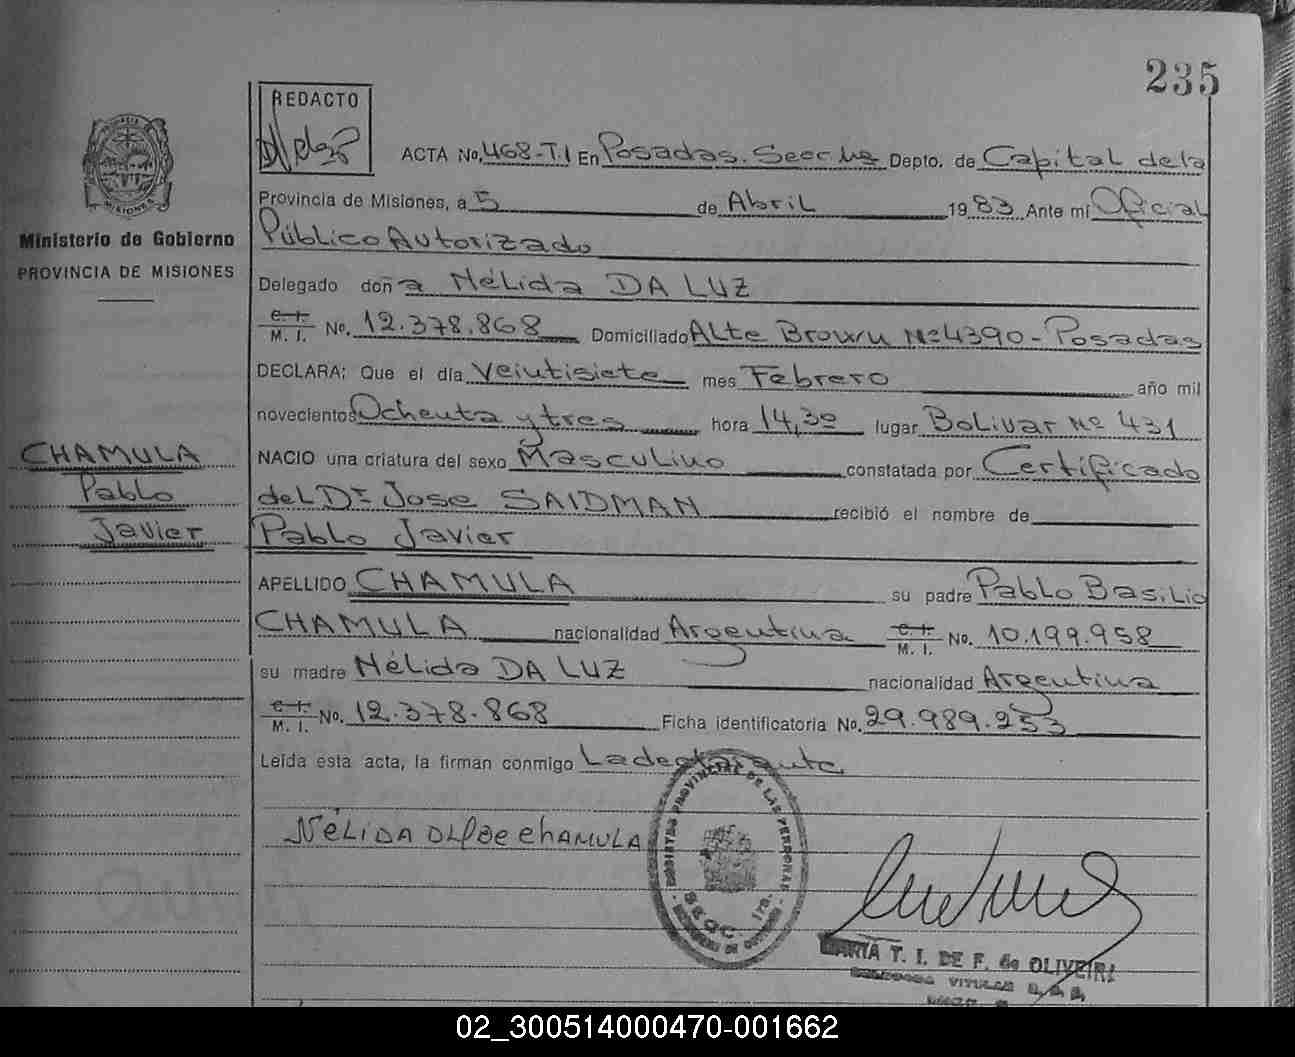 235
REDACTO
ACTA No. 468-T.I En Posadas. Secc 1ra Depto. de Capital de la
Provincia de Misiones, a 5 de Abril 1983 Ante mi Oficial
Público Autorizado
Delegado doña Nélida DA LUZ
C. I.
M. I. No. 12.378.868 Domiciliado Alte Brown Nº 4390 - Posadas
DECLARA: Que el día Veintisiete mes Febrero año mil
novecientos Ochenta y tres hora 14,30 lugar Bolivar Nº 431
NACIO una criatura del sexo Masculino constatada por Certificado
del Dr Jose SAIDMAN recibió el nombre de
Pablo Javier
APELLIDO CHAMULA su padre Pablo Basilio
CHAMULA nacionalidad Argentina C. I.
M. I. No. 10.199.958
su madre Nélida DA LUZ nacionalidad Argentina
C. I.
M. I. No. 12.378.868 Ficha identificatoria No. 29.989.253
Leída esta acta, la firman conmigo La declarante
NÉLIDA DL de CHAMULA
PROVINCIA DE MISIONES
Ministerio de Gobierno
PROVINCIA DE MISIONES
CHAMULA
Pablo
Javier
REGISTRO PROVINCIAL DE LAS PERSONAS
SECC. 1ra.
MARIA T. I. DE F. de OLIVEIRA
02_300514000470-001662